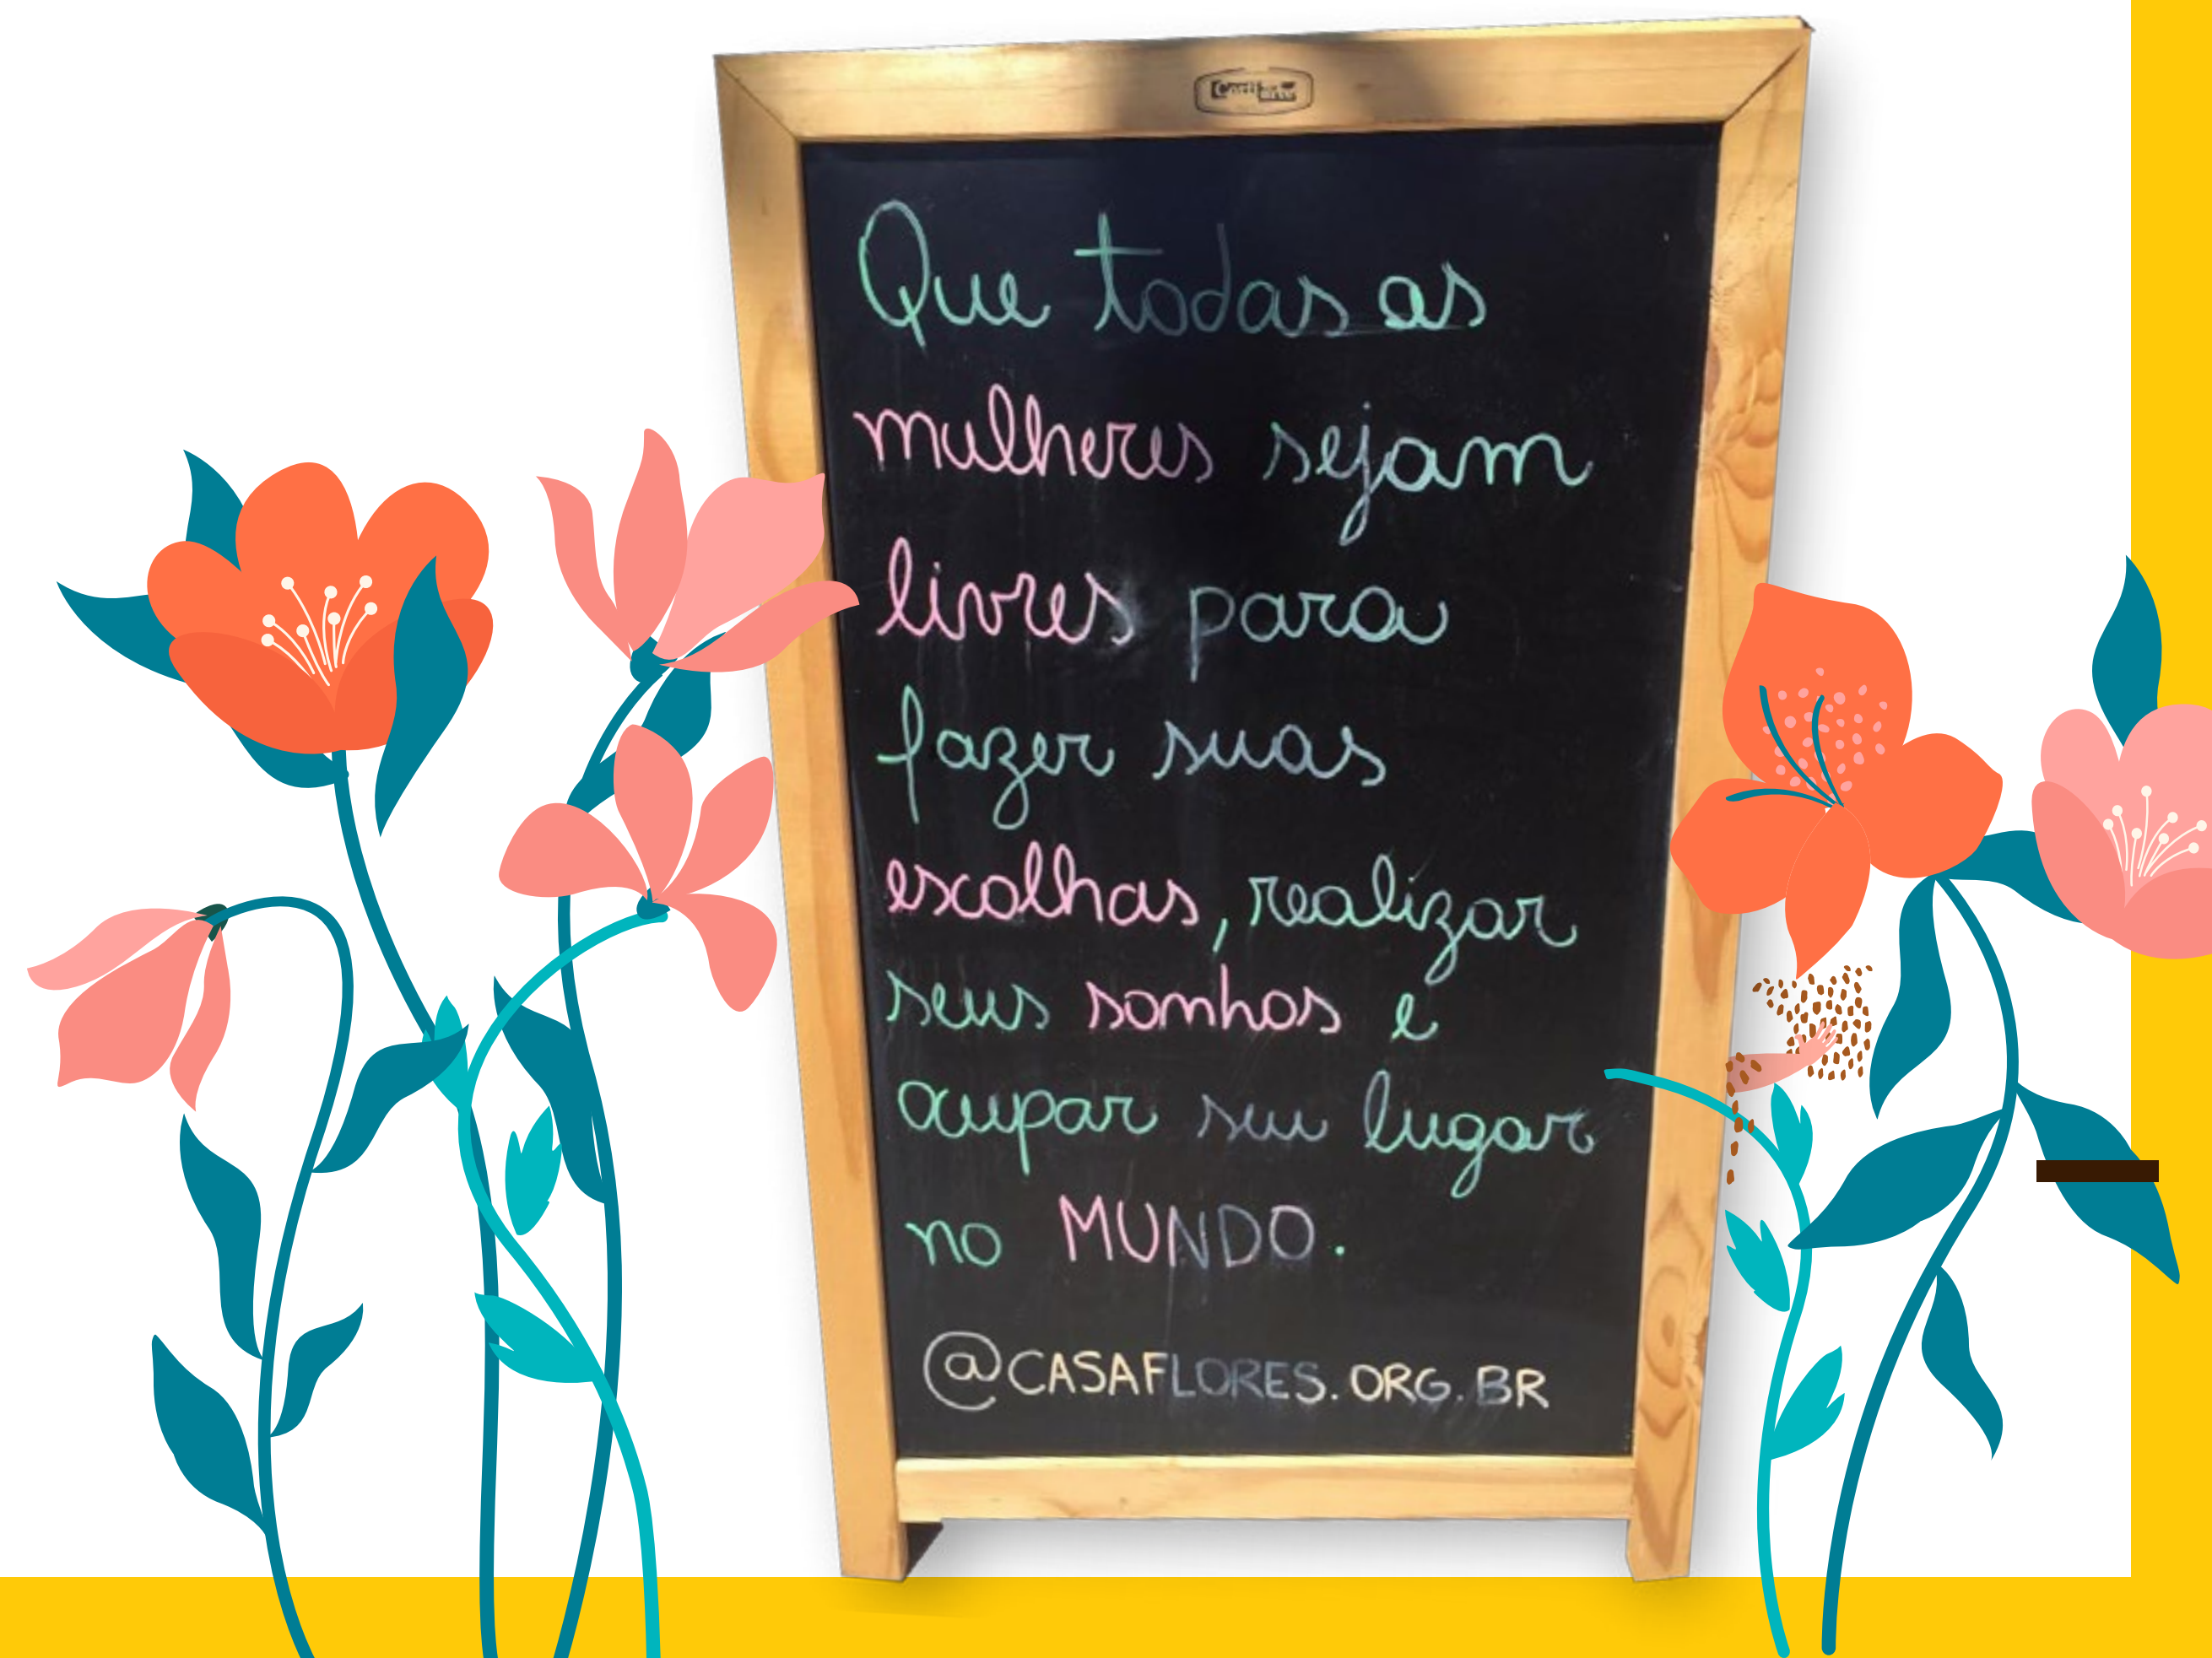 Cortiarte
Que todas as
mulheres sejam
livres para
fazer suas
escolhas, realizar
seus sonhos e
ocupar seu lugar
no MUNDO.
@CASAFLORES.ORG.BR